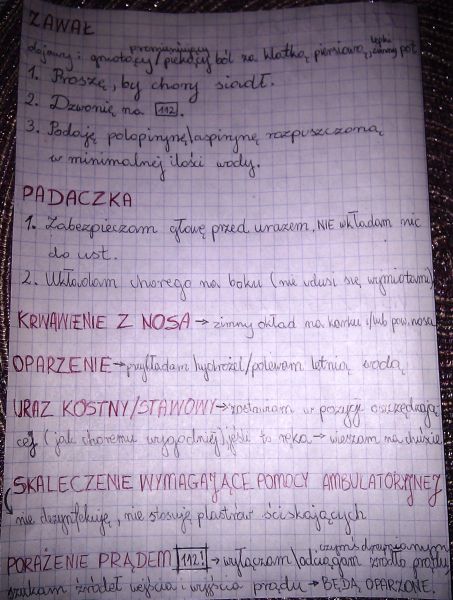 ZAWAŁ
promieniujący lepki
dojmujący i gniotący/piekący ból za klatką piersiową, zimny pot
1. Proszę, by chory siadł.
2. Dzwonię na 112.
3. Podaję polopirynę/aspirynę rozpuszczoną
w minimalnej ilości wody.
PADACZKA
1. Zabezpieczam głowę przed urazem, NIE wkładam nic
do ust.
2. Układam chorego na boku (nie udusi się wymiotami)
KRWAWIENIE Z NOSA → zimny okład na karku i/lub pow. nosa
OPARZENIE → przykładam hydrożel/polewam letnią wodą
URAZ KOSTNY/STAWOWY → zostawiam w pozycji oszczędzają
cej (jak choremu wygodniej) jeśli to ręka → wieszam na chuście
SKALECZENIE WYMAGAJĄCE POMOCY AMBULATORYJNEJ
nie dezynfekuję, nie stosuję plastrów ściskających
czymś drewnianym
PORAŻENIE PRĄDEM 112! → wyłączam/odciągam źródło prądu,
szukam źródeł wejścia i wyjścia prądu → BĘDĄ OPARZONE.